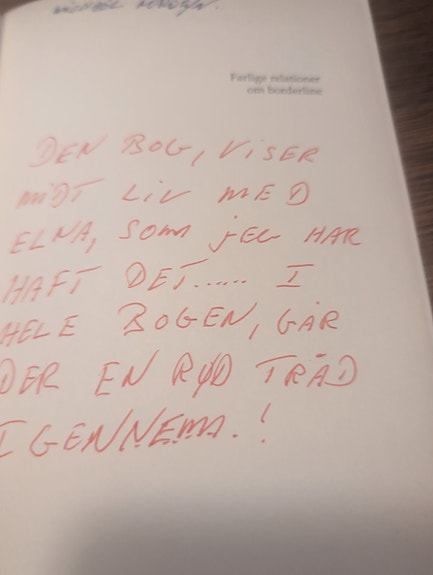 Farlige relationer
om borderline
DEN BOG, VISER
MIDT LIV MED
ELNA, SOM JEG HAR
HAFT DET...... I
HELE BOGEN, GÅR
DER EN RØD TRÅD
IGENNEM.!